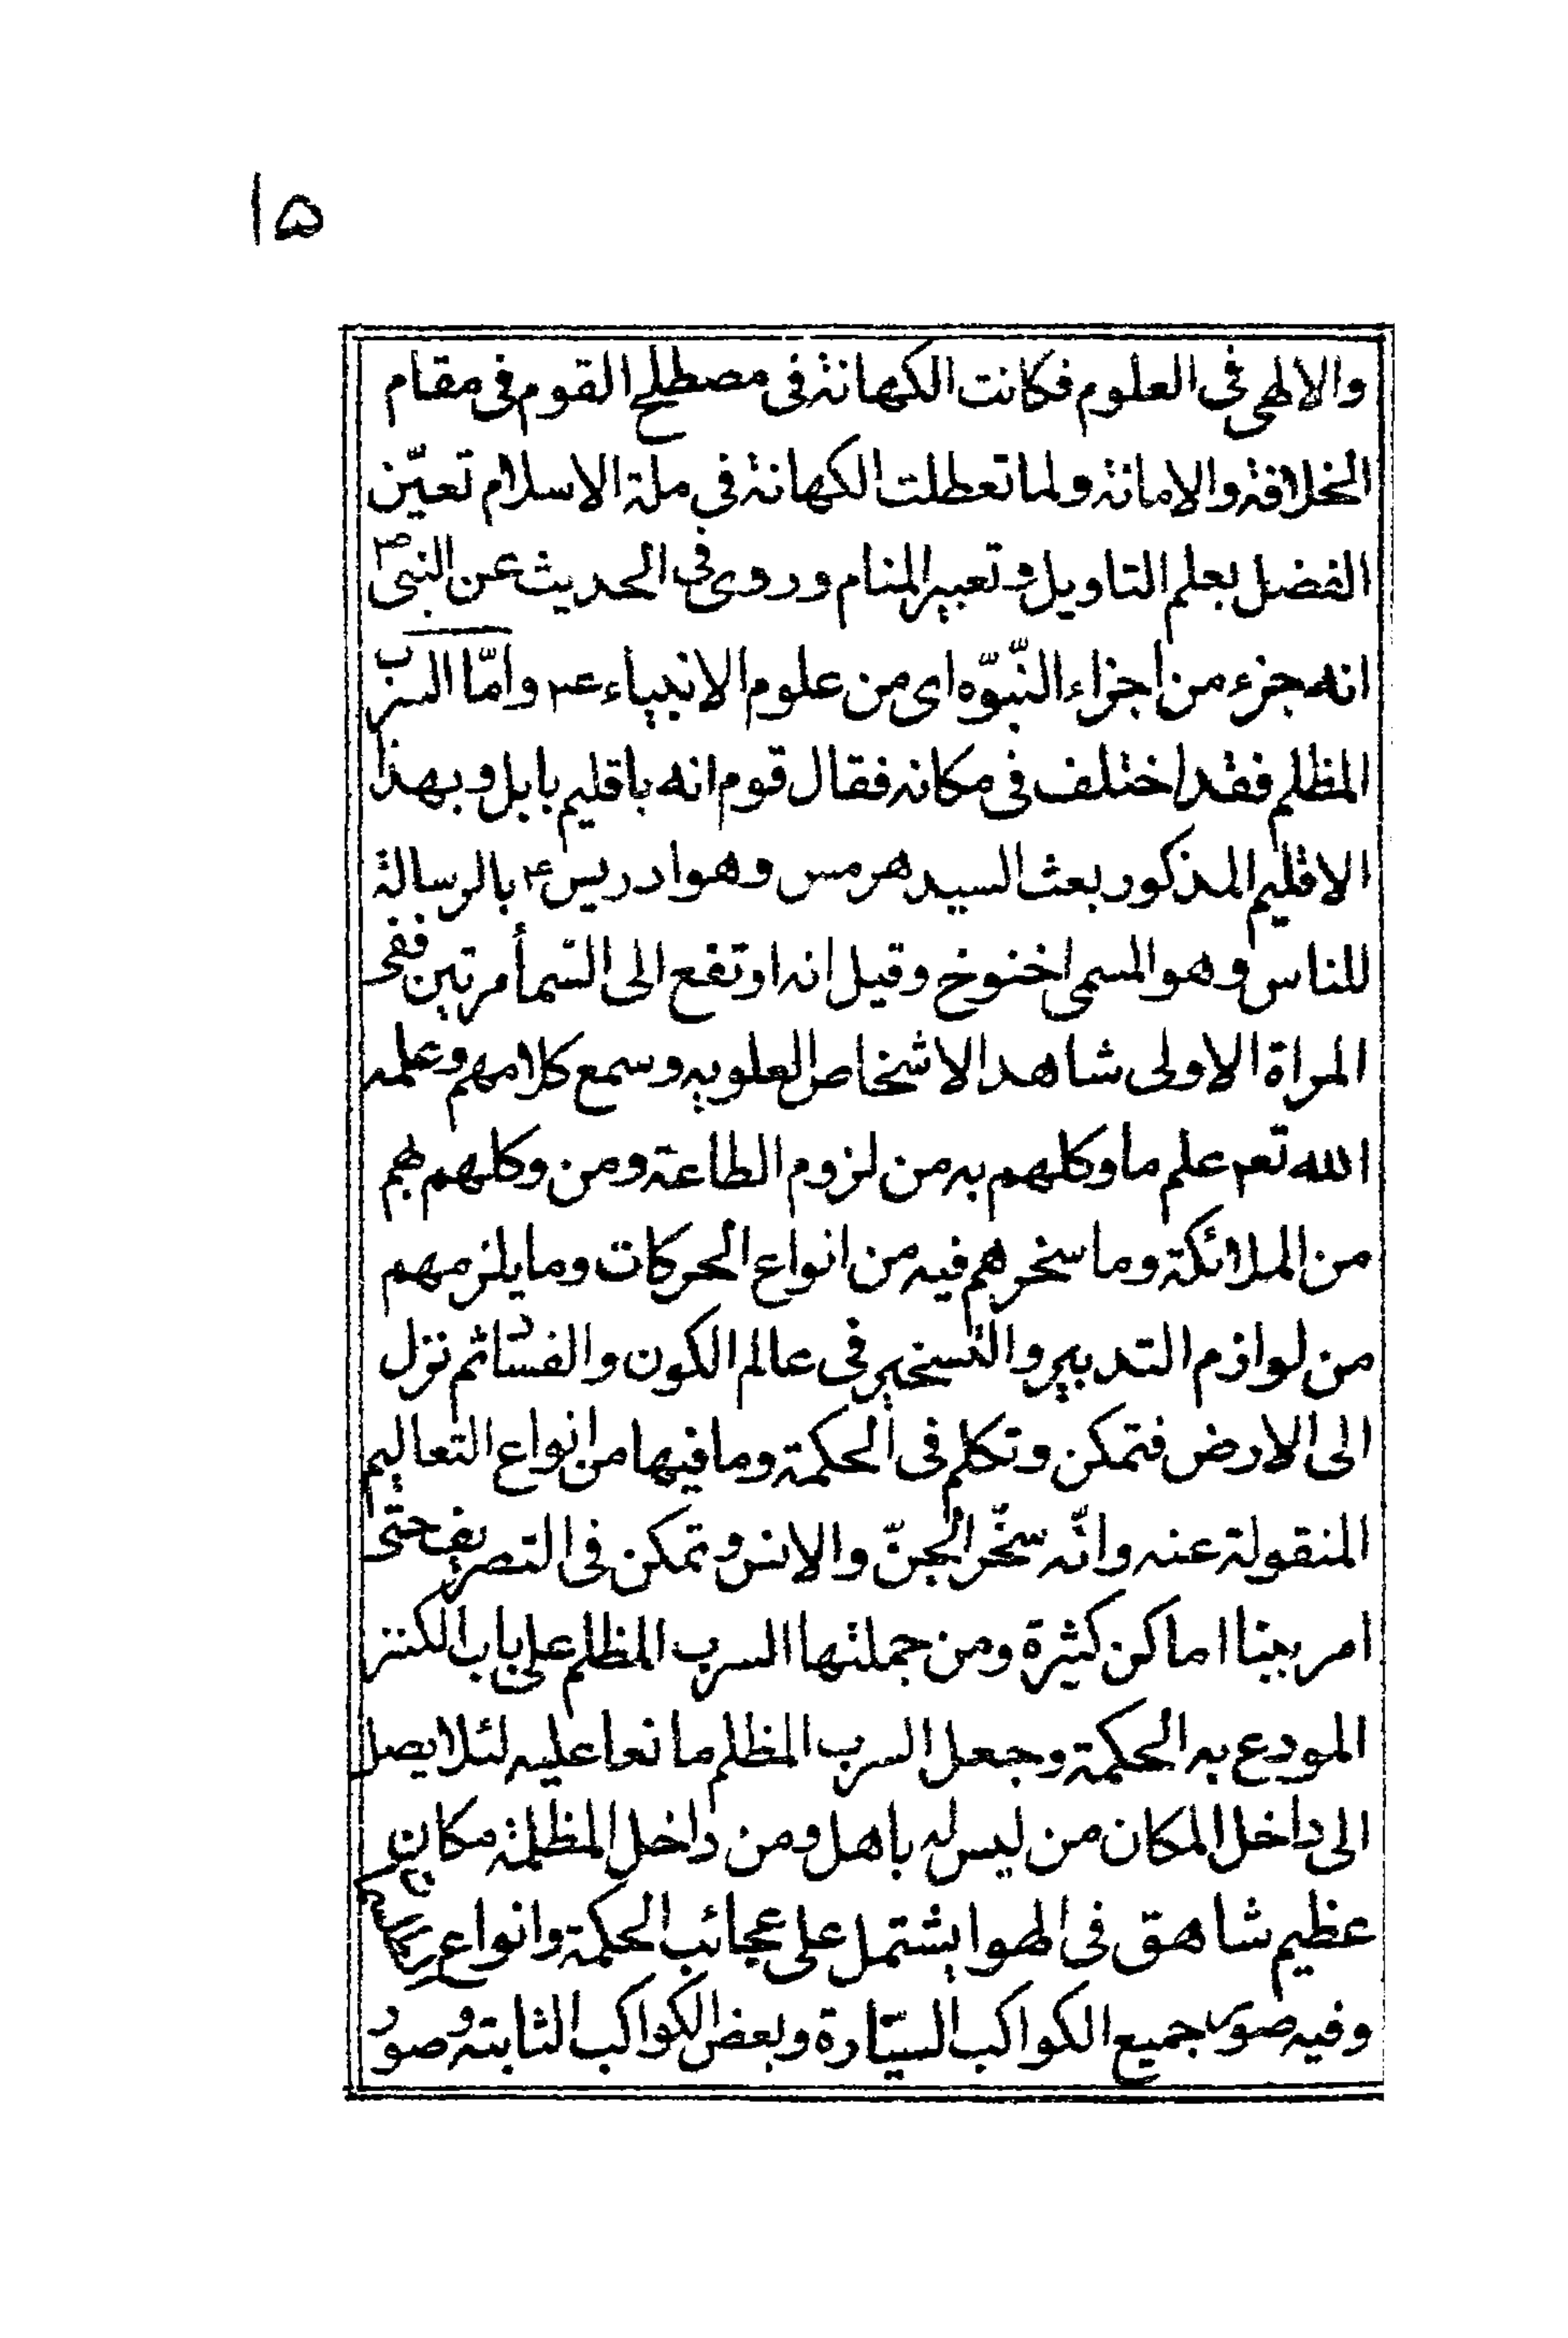 ۱۵
والالهى فى العلوم فكانت الكهانة فى مصطلح القوم فى مقام
الخلافة والامانة ولما تعطلت الكهانة فى ملة الاسلام تعيّن
الفضل بعلم التاويل وتعبير المنام وروى فى الحديث عن النبى ص
انه جزء من اجزاء النّبوّه اى من علوم الانبياء ع وامّا السرب
المظلم فقد اختلف فى مكانه فقال قوم انه باقليم بابل وبهذا
الاقليم المذكور بعث السيد هرمس وهو ادريس ع بالرسالة
للناس وهو المسمى اخنوخ وقيل انه اوتفع الى السّمأ مرتين ففى
المراة الاولى شاهد الاشخاص العلويه وسمع كلامهم وعلمه
الله تعم علم ما وكلهم به من لزوم الطاعة ومن وكلهم بهم
من الملائكة وما سخرهم فيه من انواع الحركات وما يلزمهم
من لوازم التدبير والتسخير فى عالم الكون والفساد ثم نزل
الى الارض فتمكن وتكلم فى الحكمة وما فيها من انواع التعاليم
المنقولة عنه وانّه سخّر الجنّ والانس وتمكن فى التصريف حتى
امر ببنا اماكن كثيرة ومن جملتها السرب المظلم على باب الكنز
المودع به الحكمة وجعل السرب المظلم مانعا عليه لئلا يصل
الى داخل المكان من ليس له باهل ومن داخل المظلمة مكان
عظيم شاهق فى الهوا يشتمل على عجائب الحكمة وانواع
وفيه صور جميع الكواكب السيّارة وبعض الكواكب الثابته وصور